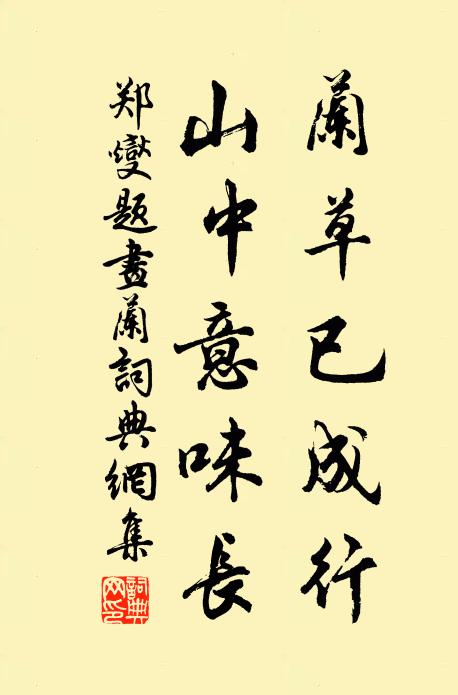 蘭草已成行
山中意味長
郑燮題畫蘭詞典網集
詞典網印